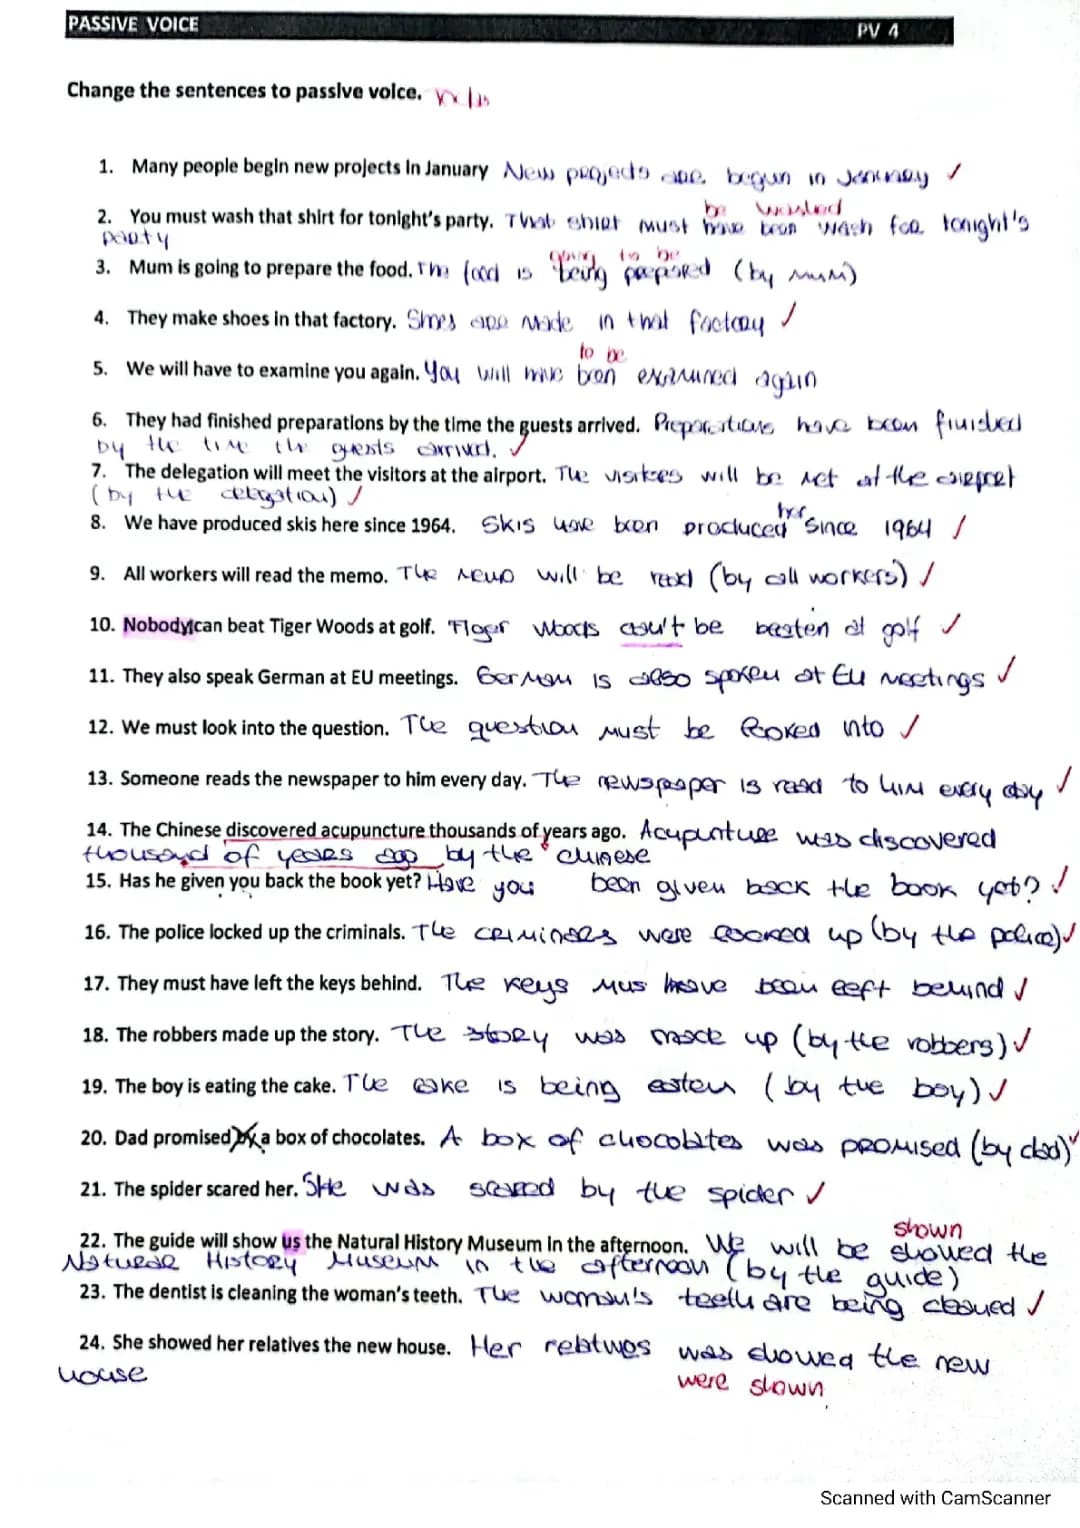 PASSIVE VOICE PV 4
Change the sentences to passive voice.
1. Many people begin new projects in January New projects are begun in January ✓
be washed
2. You must wash that shirt for tonight's party. That shirt must have been wash for tonight's
party
going to be
3. Mum is going to prepare the food. The food is being prepared (by mum)
4. They make shoes in that factory. Shoes are made in that factory ✓
to be
5. We will have to examine you again. You will have been examined again
6. They had finished preparations by the time the guests arrived. Preparations have been finished
by the time the guests arrived. ✓
7. The delegation will meet the visitors at the airport. The visitors will be met at the airport
(by the delegation) ✓
8. We have produced skis here since 1964. Skis have been produced since 1964 ✓
9. All workers will read the memo. The memo will be read (by all workers) ✓
10. Nobody can beat Tiger Woods at golf. Tiger Woods can't be beaten at golf ✓
11. They also speak German at EU meetings. German is also spoken at EU meetings ✓
12. We must look into the question. The question must be looked into ✓
13. Someone reads the newspaper to him every day. The newspaper is read to him every day ✓
14. The Chinese discovered acupuncture thousands of years ago. Acupunture was discovered
thousand of years ago by the chinese
15. Has he given you back the book yet? Have you been given back the book yet? ✓
16. The police locked up the criminals. The criminals were locked up (by the police) ✓
17. They must have left the keys behind. The keys mus have been left behind ✓
18. The robbers made up the story. The story was made up (by the robbers) ✓
19. The boy is eating the cake. The cake is being eaten (by the boy) ✓
20. Dad promised a box of chocolates. A box of chocolates was promised (by dad) ✓
21. The spider scared her. She was scared by the spider ✓
shown
22. The guide will show us the Natural History Museum in the afternoon. We will be showed the
Natural History Museum in the afternoon (by the guide)
23. The dentist is cleaning the woman's teeth. The woman's teeth are being cleaned ✓
24. She showed her relatives the new house. Her relatives was showed the new
house
were shown
Scanned with CamScanner